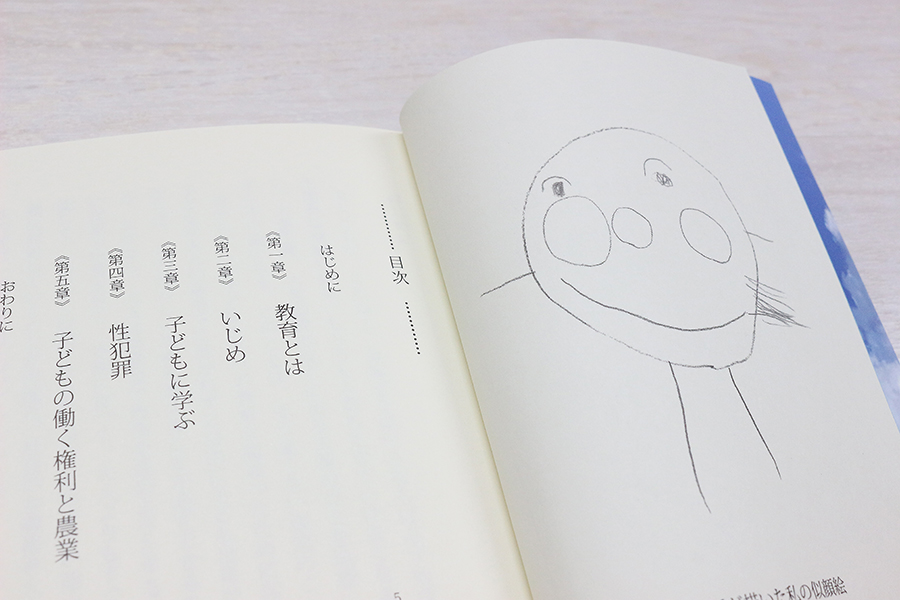 が描いた私の似顔絵
目次
はじめに
《第一章》 教育とは
《第二章》 いじめ
《第三章》 子どもに学ぶ
《第四章》 性犯罪
《第五章》 子どもの働く権利と農業
おわりに
5